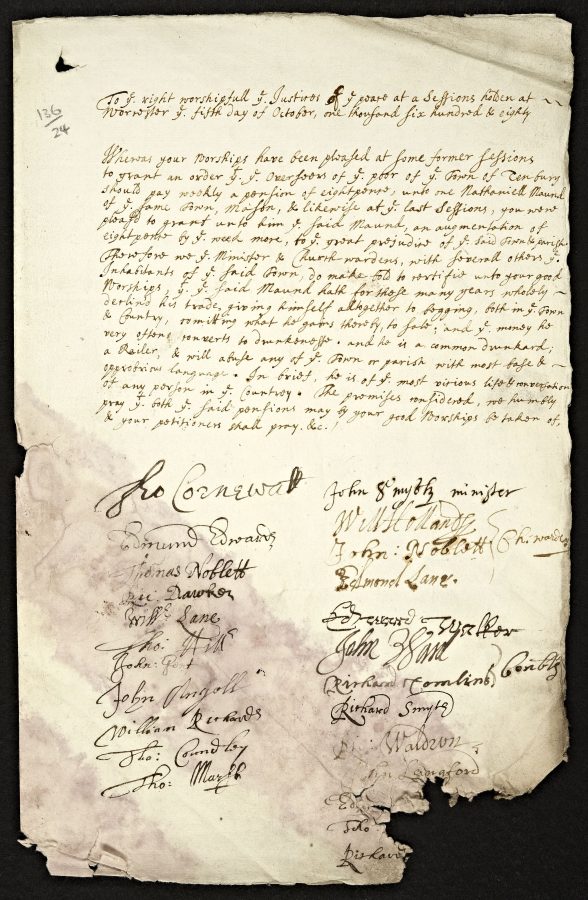 136
24
To ye. right worshipfull ye. Justices of ye peace at a Sessions holden at
Worcester ye. fifth day of October, one thousand six hundred & eighty
Whereas your Worships have been pleased at some former Sessions
to grant an order yt. ye. Overseers of ye. poor of ye. Town of Tenbury
should pay weekly a pension of eightpence, unto one Nathaniell Maund
of ye. same Town, Mason, & likewise at ye. last Sessions, you were
pleas'd to grant unto him ye. said Maund, an augmentation of
eightpence by ye. week more, to ye. great prejudice of ye. said Town & parish
Therefore we ye. Minister & Church wardens, with severall others ye.
Inhabitants of ye. said Town, do make bold to certifie unto your good
Worships, yt. ye. said Maund hath for these many years wholely
declin'd his trade, giving himself altogether to begging, both in ye. Town
& Country, comitting what he gains thereby, to sale; and ye. money he
very often converts to drunkenesse. and he is a common drunkard,
a Railer, & will abuse any of ye. Town or parish with most base &
opprobrious language. In brief, he is of ye. most vicious life & conversation
of any person in ye. Countrey. The premises considered, we humbly
pray yt. both ye. said pensions may by your good Worships be taken of,
& your petitioners shall pray. &c.
Tho Cornewall
John Smyth minister
Edmund Edwards
Will Hollands
Thomas Noblett
John: Noblett
Ch: wardens
Ric: Dawkes
Edmond Lane.
Willm Lane
Edward Walker
Tho: Hill
John Ward
John:
Richard Tomlins
Constbs
John Angoll
Richard Smyth
William Richards
Waldron
Tho: Coundley
John Langford
Tho: Marsh
Edw
Tho
Richard